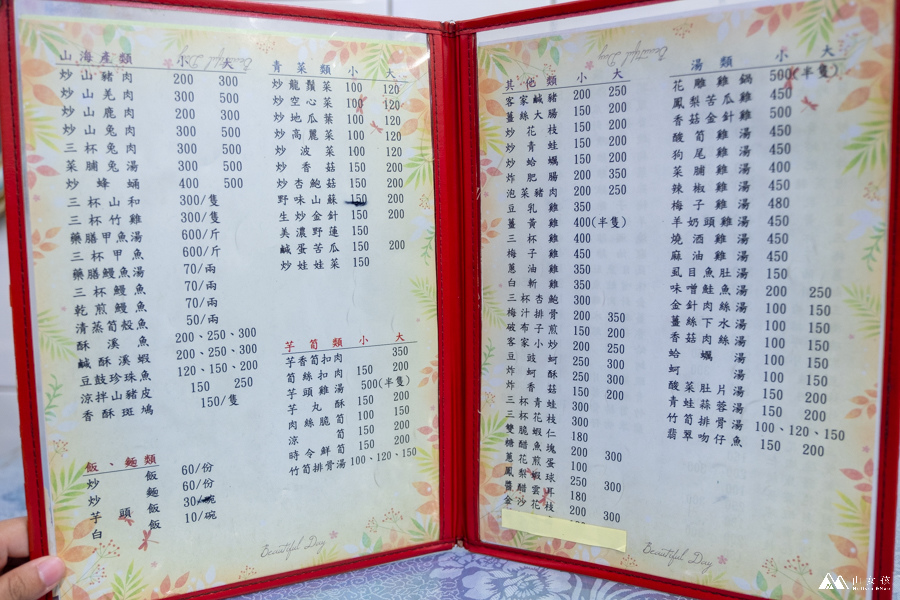 山海產類 小 大
炒山豬肉 200 300
炒山羌肉 300 500
炒山鹿肉 200 300
炒山兔肉 300 500
三杯兔肉 300 500
菜脯兔湯 300 500
炒蜂蛹 400 500
三杯山和 300/隻
三杯竹雞 300/隻
藥膳甲魚湯 600/斤
三杯甲魚 600/斤
藥膳鰻魚湯 70/兩
三杯鰻魚 70/兩
乾煎鰻魚 70/兩
清蒸筍殼魚 50/兩
酥溪魚 200、250、300
鹹酥溪蝦 200、250、300
豆鼓珍珠魚 120、150、200
涼拌山豬皮 150 250
香酥斑鳩 150/隻
飯、麵類
炒飯 60/份
炒麵 60/份
芋頭飯 30/碗
白飯 10/碗
青菜類 小 大
炒龍鬚菜 100 120
炒空心菜 100 120
炒地瓜葉 100 120
炒高麗菜 100 120
炒波菜 100 120
炒香菇 150 200
炒杏鮑菇 150 200
野味山蘇 150 200
生炒金針 150 200
美濃野蓮 150
鹹蛋苦瓜 150 200
炒娃娃菜 150
芋筍類 小 大
芋香筍扣肉 350
筍絲扣肉 150 200
芋頭雞湯 500(半隻)
芋丸酥 150 200
肉絲脆筍 100 150
涼筍 150 200
時令鮮筍 150 200
竹筍排骨湯 100、120、150
Beautiful Day
其他類 小 大
客家鹹豬 200 250
薑絲大腸 150 200
炒花枝 150 200
炒青蛙 150 200
炒蛤蠣 150 200
炸肥腸 200 350
泡菜豬肉 200 250
豆乳雞 350
薑黃雞 400(半隻)
三杯雞 400
梅子雞 450
蔥油雞 350
白斬雞 350
三杯杏鮑 300
梅汁排骨 200 350
破布子煎 150 200
客家小炒 200 350
豆豉蚵 250 300
炸蚵酥 250 300
炸香菇 150 200
三杯青蛙 300
三杯花枝 300
雙脆蝦仁 180
糖醋魚塊 200 300
蔥花煎蛋 100
鳳梨蝦球 250 300
醬醋雲耳 180
金沙花枝 200 300
湯類 小 大
花雕雞鍋 500(半隻)
鳳梨苦瓜雞 450
香菇金針雞 500
酸筍雞湯 450
狗尾雞湯 450
菜脯雞湯 450
辣椒雞湯 450
梅子雞湯 480
羊奶頭雞湯 450
燒酒雞湯 450
麻油雞湯 450
虱目魚肚湯 150
味噌鮭魚湯 200 250
金針肉絲湯 100 150
薑絲下水湯 100 150
香菇肉絲湯 100 150
蛤蠣湯 100 150
蚵湯 100 150
酸菜肚片湯 150 200
青蛙蒜蓉湯 150 200
竹筍排骨湯 100、120、150
翡翠吻仔魚 150 200
Beautiful Day
山女孩